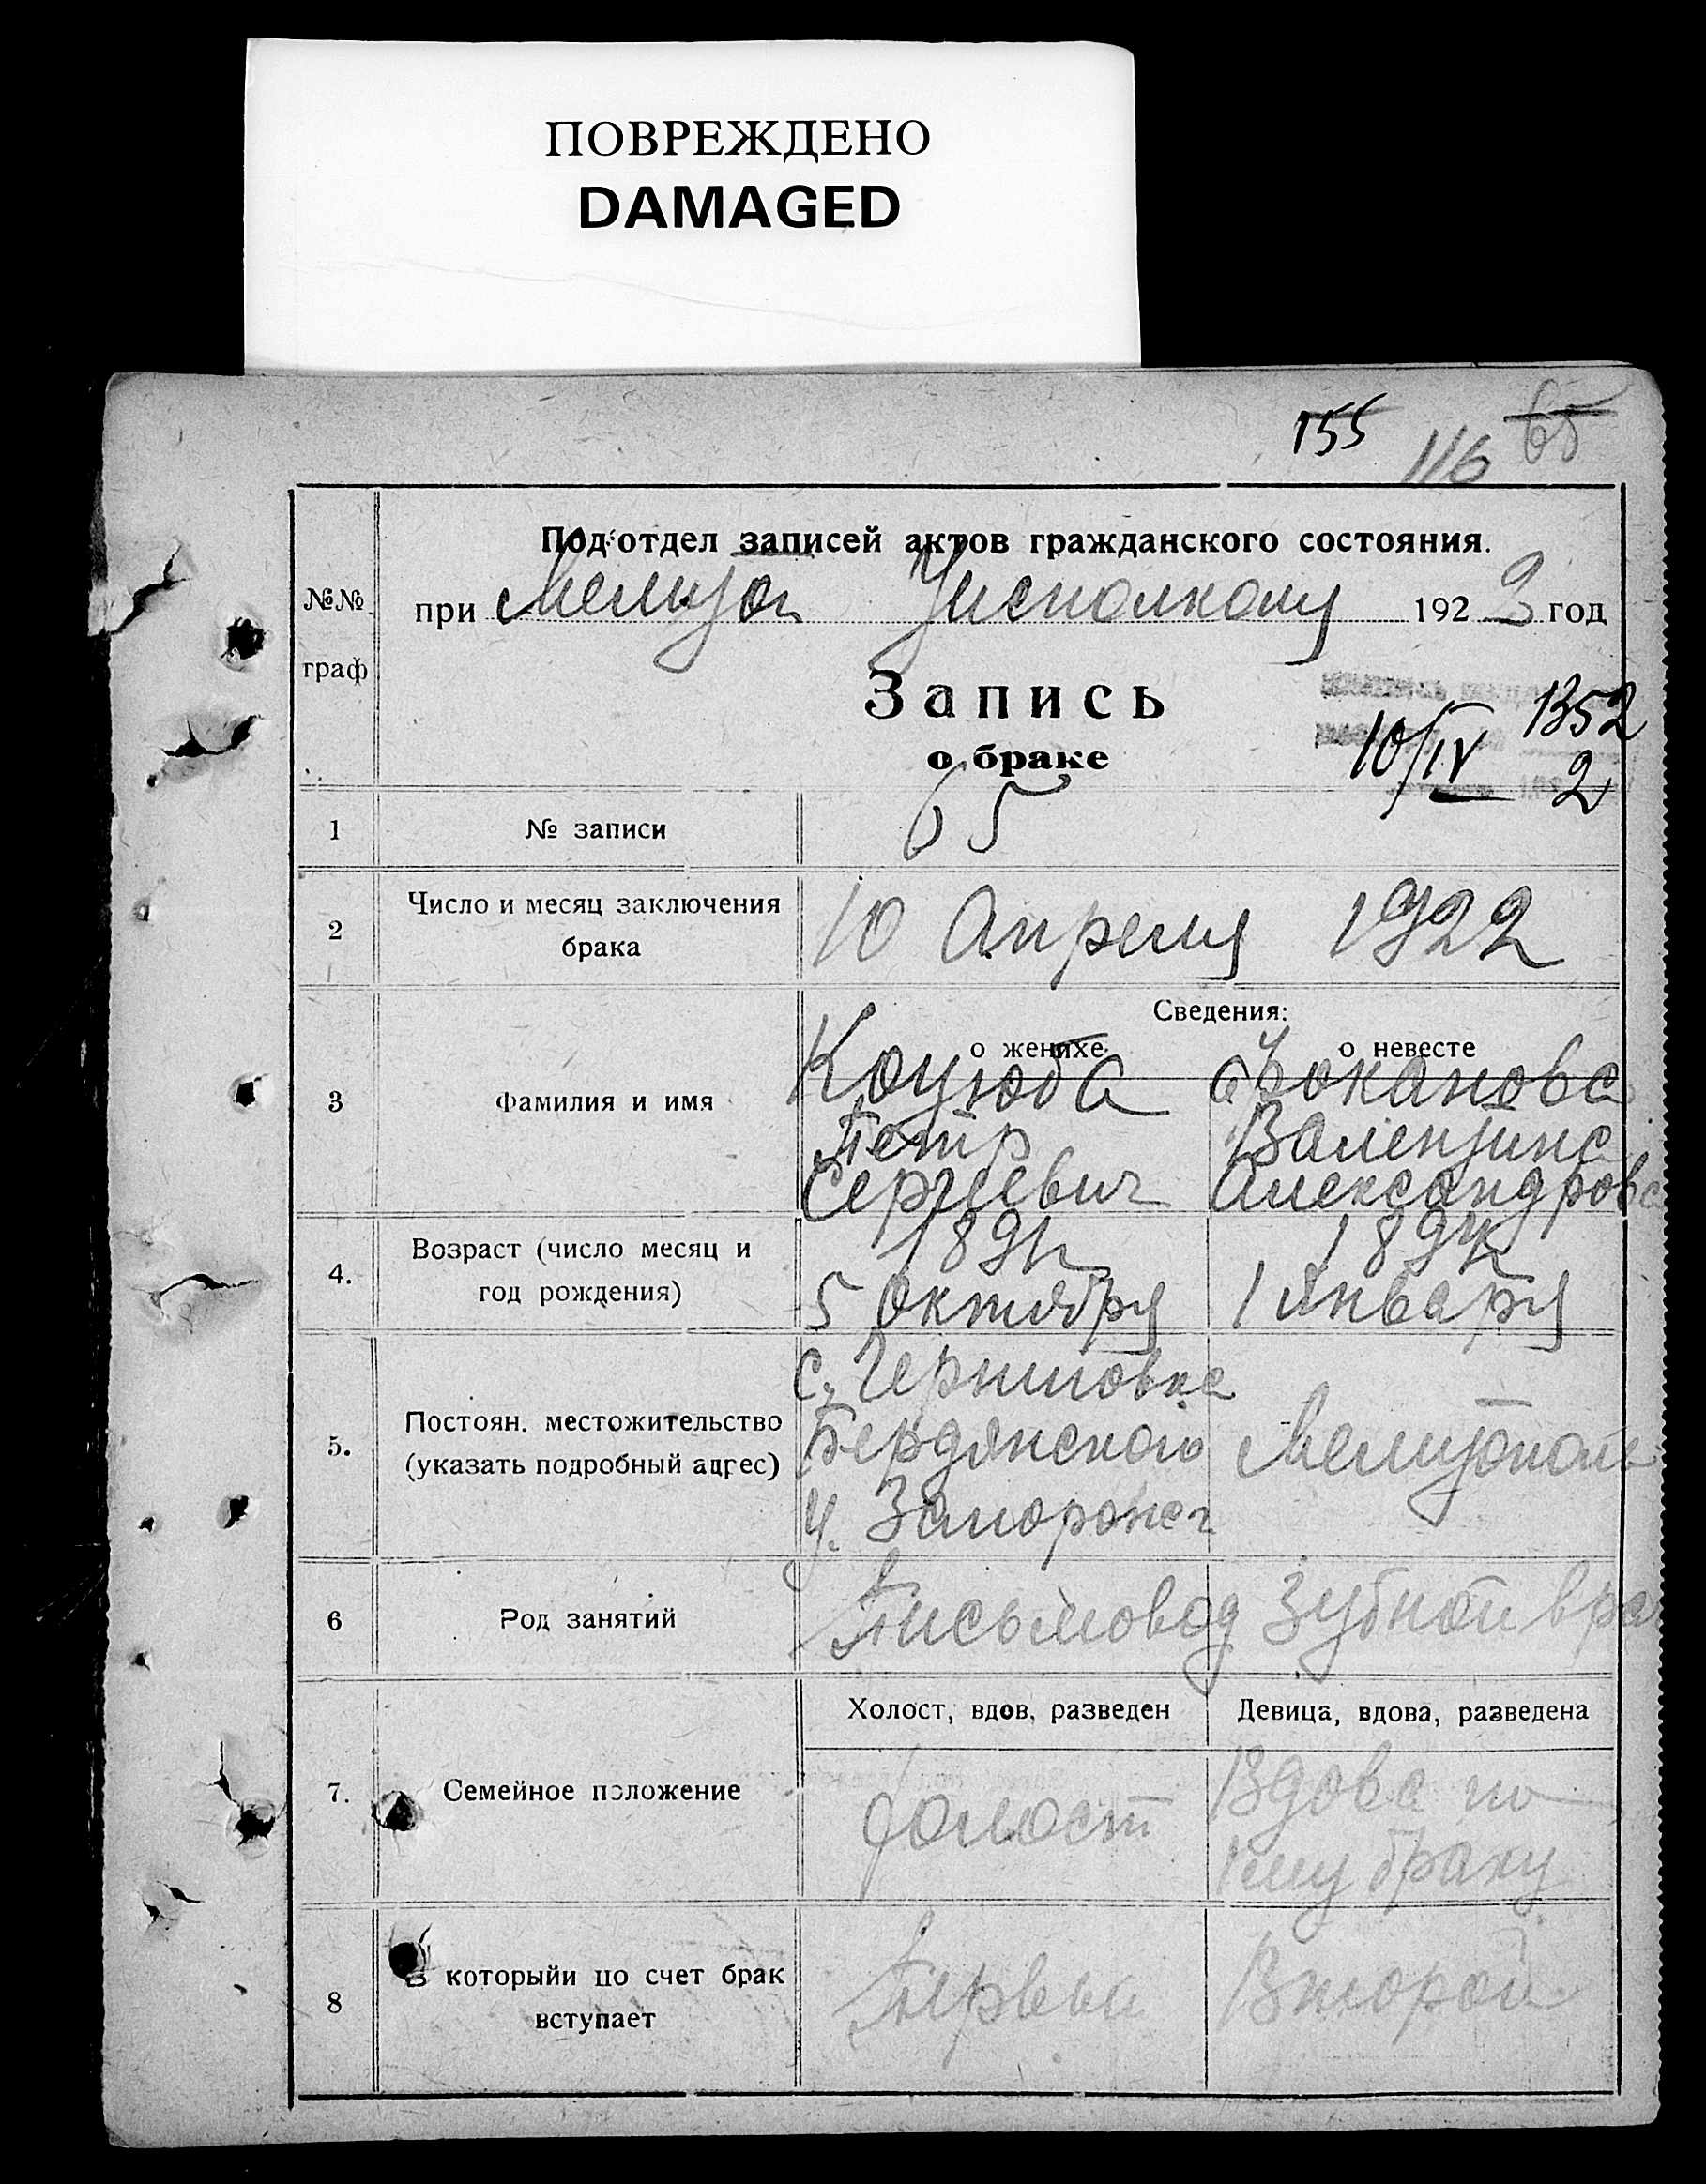 ПОВРЕЖДЕНО
DAMAGED
155 116 65
Под'отдел записей актов гражданского состояния.
№№ граф
при Мелитоп Уисполкому 1922 год
Запись
о браке
1352
10/IV 2
1 № записи 65
2 Число и месяц заключения брака 10 Апреля 1922
Сведения:
о женихе о невесте
3 Фамилия и имя
Коцюба
Петр
Сергеевич
Фоканова
Валентина
Александровна
4. Возраст (число месяц и
год рождения)
5 Октября
189
1 Января
5. Постоян. местожительство
(указать подробный адрес)
с. Черниговка
Бердянского
у. Запорожск
Мелитополь
6 Род занятий Письмовод Зубной вра
Холост, вдов, разведен Девица, вдова, разведена
7. Семейное положение
холост
Вдова по
1му браку
8 В которыйи по счет брак
вступает
Первый Второй